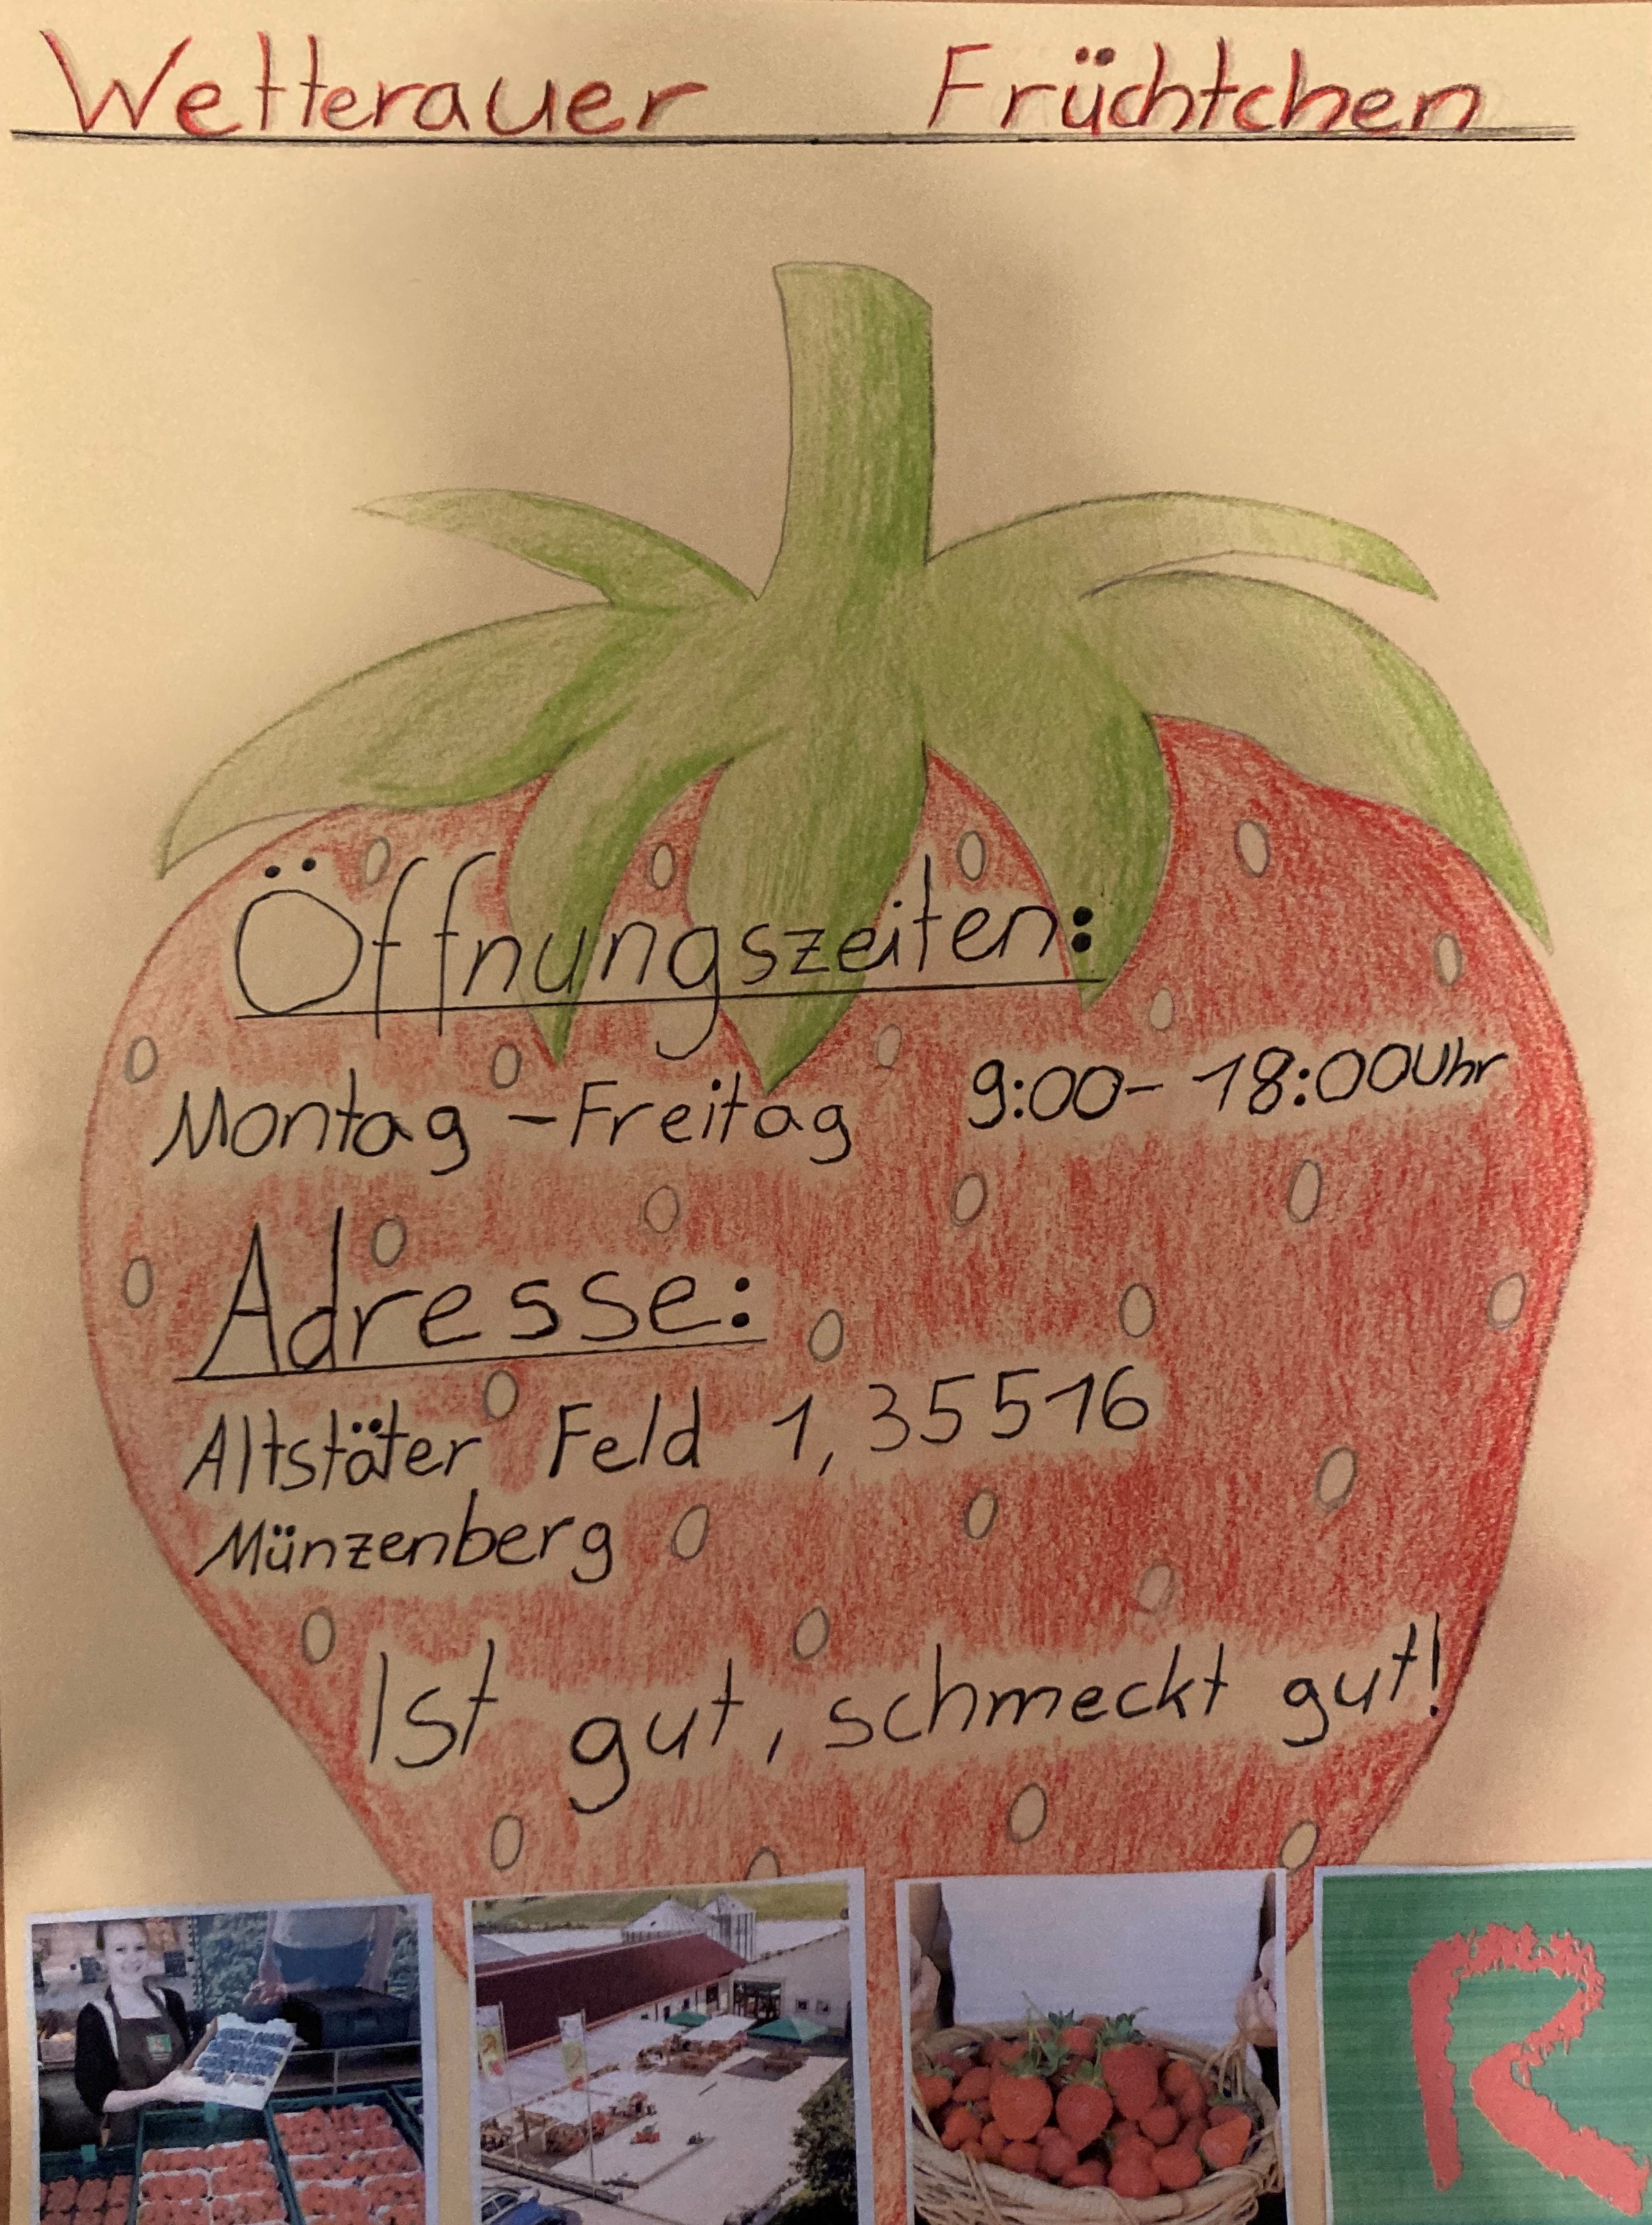 Wetterauer Früchtchen
Öffnungszeiten:
Montag – Freitag 9:00 – 18:00 Uhr
Adresse:
Altstäter Feld 1, 35516
Münzenberg
Ist gut, schmeckt gut!
R